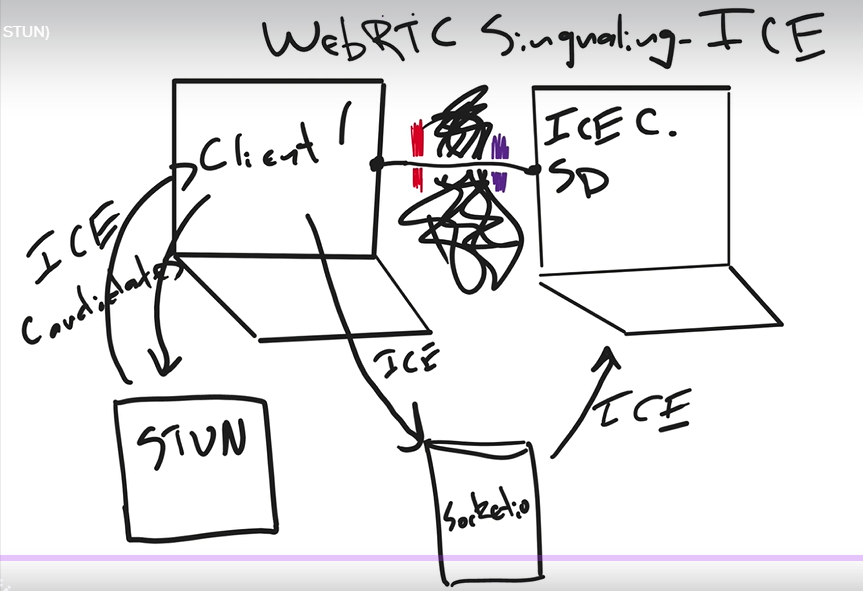 STUN)
WebRTC Singnaling-ICE
Client 1
ICE C.
SD
ICE
Candidates
ICE
ICE
STUN
Socketio